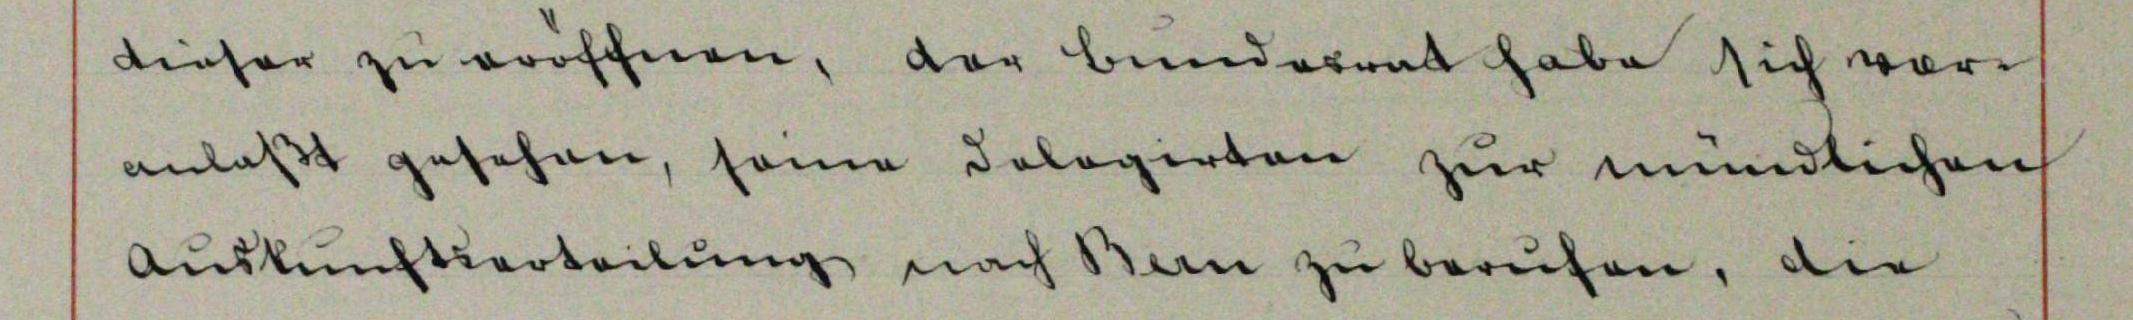 dieser zu eröffnen, der Bundesrat habe sich ver-
anlaßt gesehen, seine Delegirten zur mündlichen
Auskunftserteilung nach Bern zu berufen, die